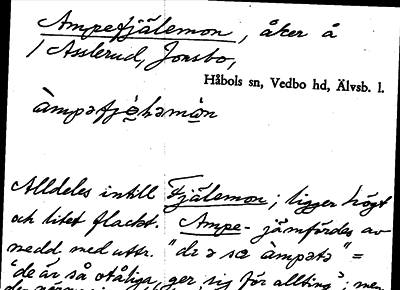 Ampefjälemon, åker å
/ Asslerud, Jonsbo,
Håbols sn, Vedbo hd, Älvsb. l.
àmpəfjɷ̀ləmɷ̀n
Alldeles intill Fjälemon; ligger högt
och litet flackt. Ampe- jämfördes av
medd. med uttr. "de ə sɷ àmpətə" =
"de är så otåliga, ger sig för allting"; men